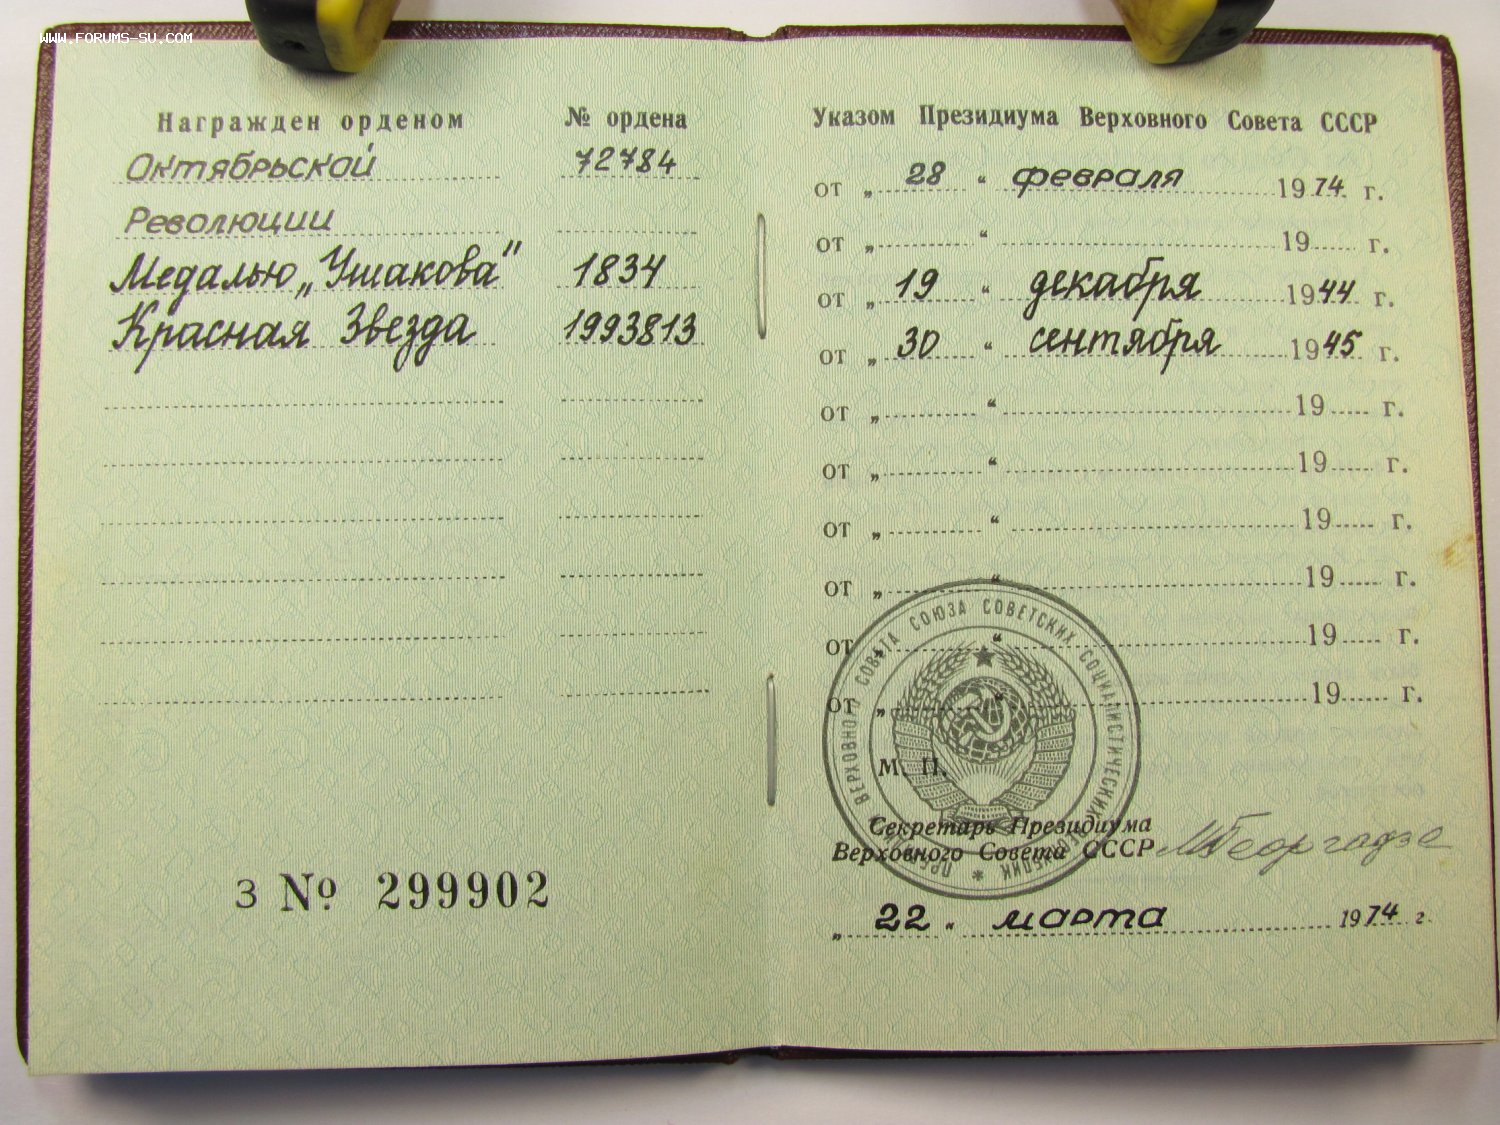 WWW.FORUMS-SU.COM
Награжден орденом № ордена
Октябрьской 72784
Революции
Медалью „Ушакова" 1834
Красная Звезда 1993813
З № 299902
Указом Президиума Верховного Совета СССР
от „ 28 “ февраля 1974 г.
от „ “ 19 г.
от „ 19 “ декабря 1944 г.
от „ 30 “ сентября 1945 г.
от „ “ 19 г.
от „ “ 19 г.
от „ “ 19 г.
от „ “ 19 г.
от „ “ 19 г.
от „ “ 19 г.
ПРЕЗИДИУМ ВЕРХОВНОГО СОВЕТА СОЮЗА СОВЕТСКИХ СОЦИАЛИСТИЧЕСКИХ РЕСПУБЛИК *
М. П.
Секретарь Президиума
Верховного Совета СССР МГеоргадзе
„ 22 “ марта 1974 г.